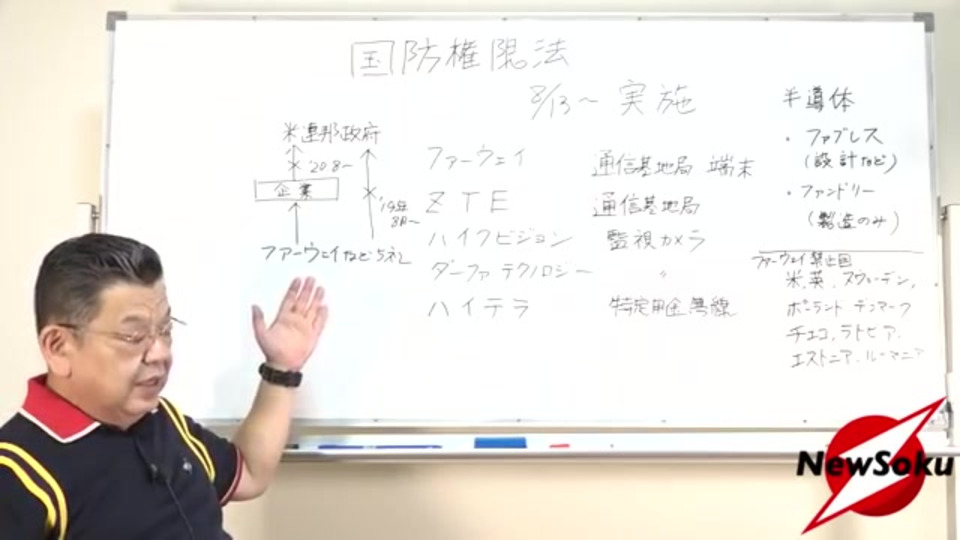 国防権限法
8/13～ 実施
米連邦政府
'20 8～
企業
'19年
8月～
ファーウェイなど5社
ファーウェイ 通信基地局 端末
ZTE 通信基地局
ハイクビジョン 監視カメラ
ダーファテクノロジー 〃
ハイテラ 特定用途無線
半導体
・ファブレス
(設計など)
・ファンドリー
(製造のみ)
ファーウェイ禁止国
米、英、スウェーデン、
ポーランド デンマーク
チェコ、ラトビア、
エストニア、ルーマニア
NewSoku